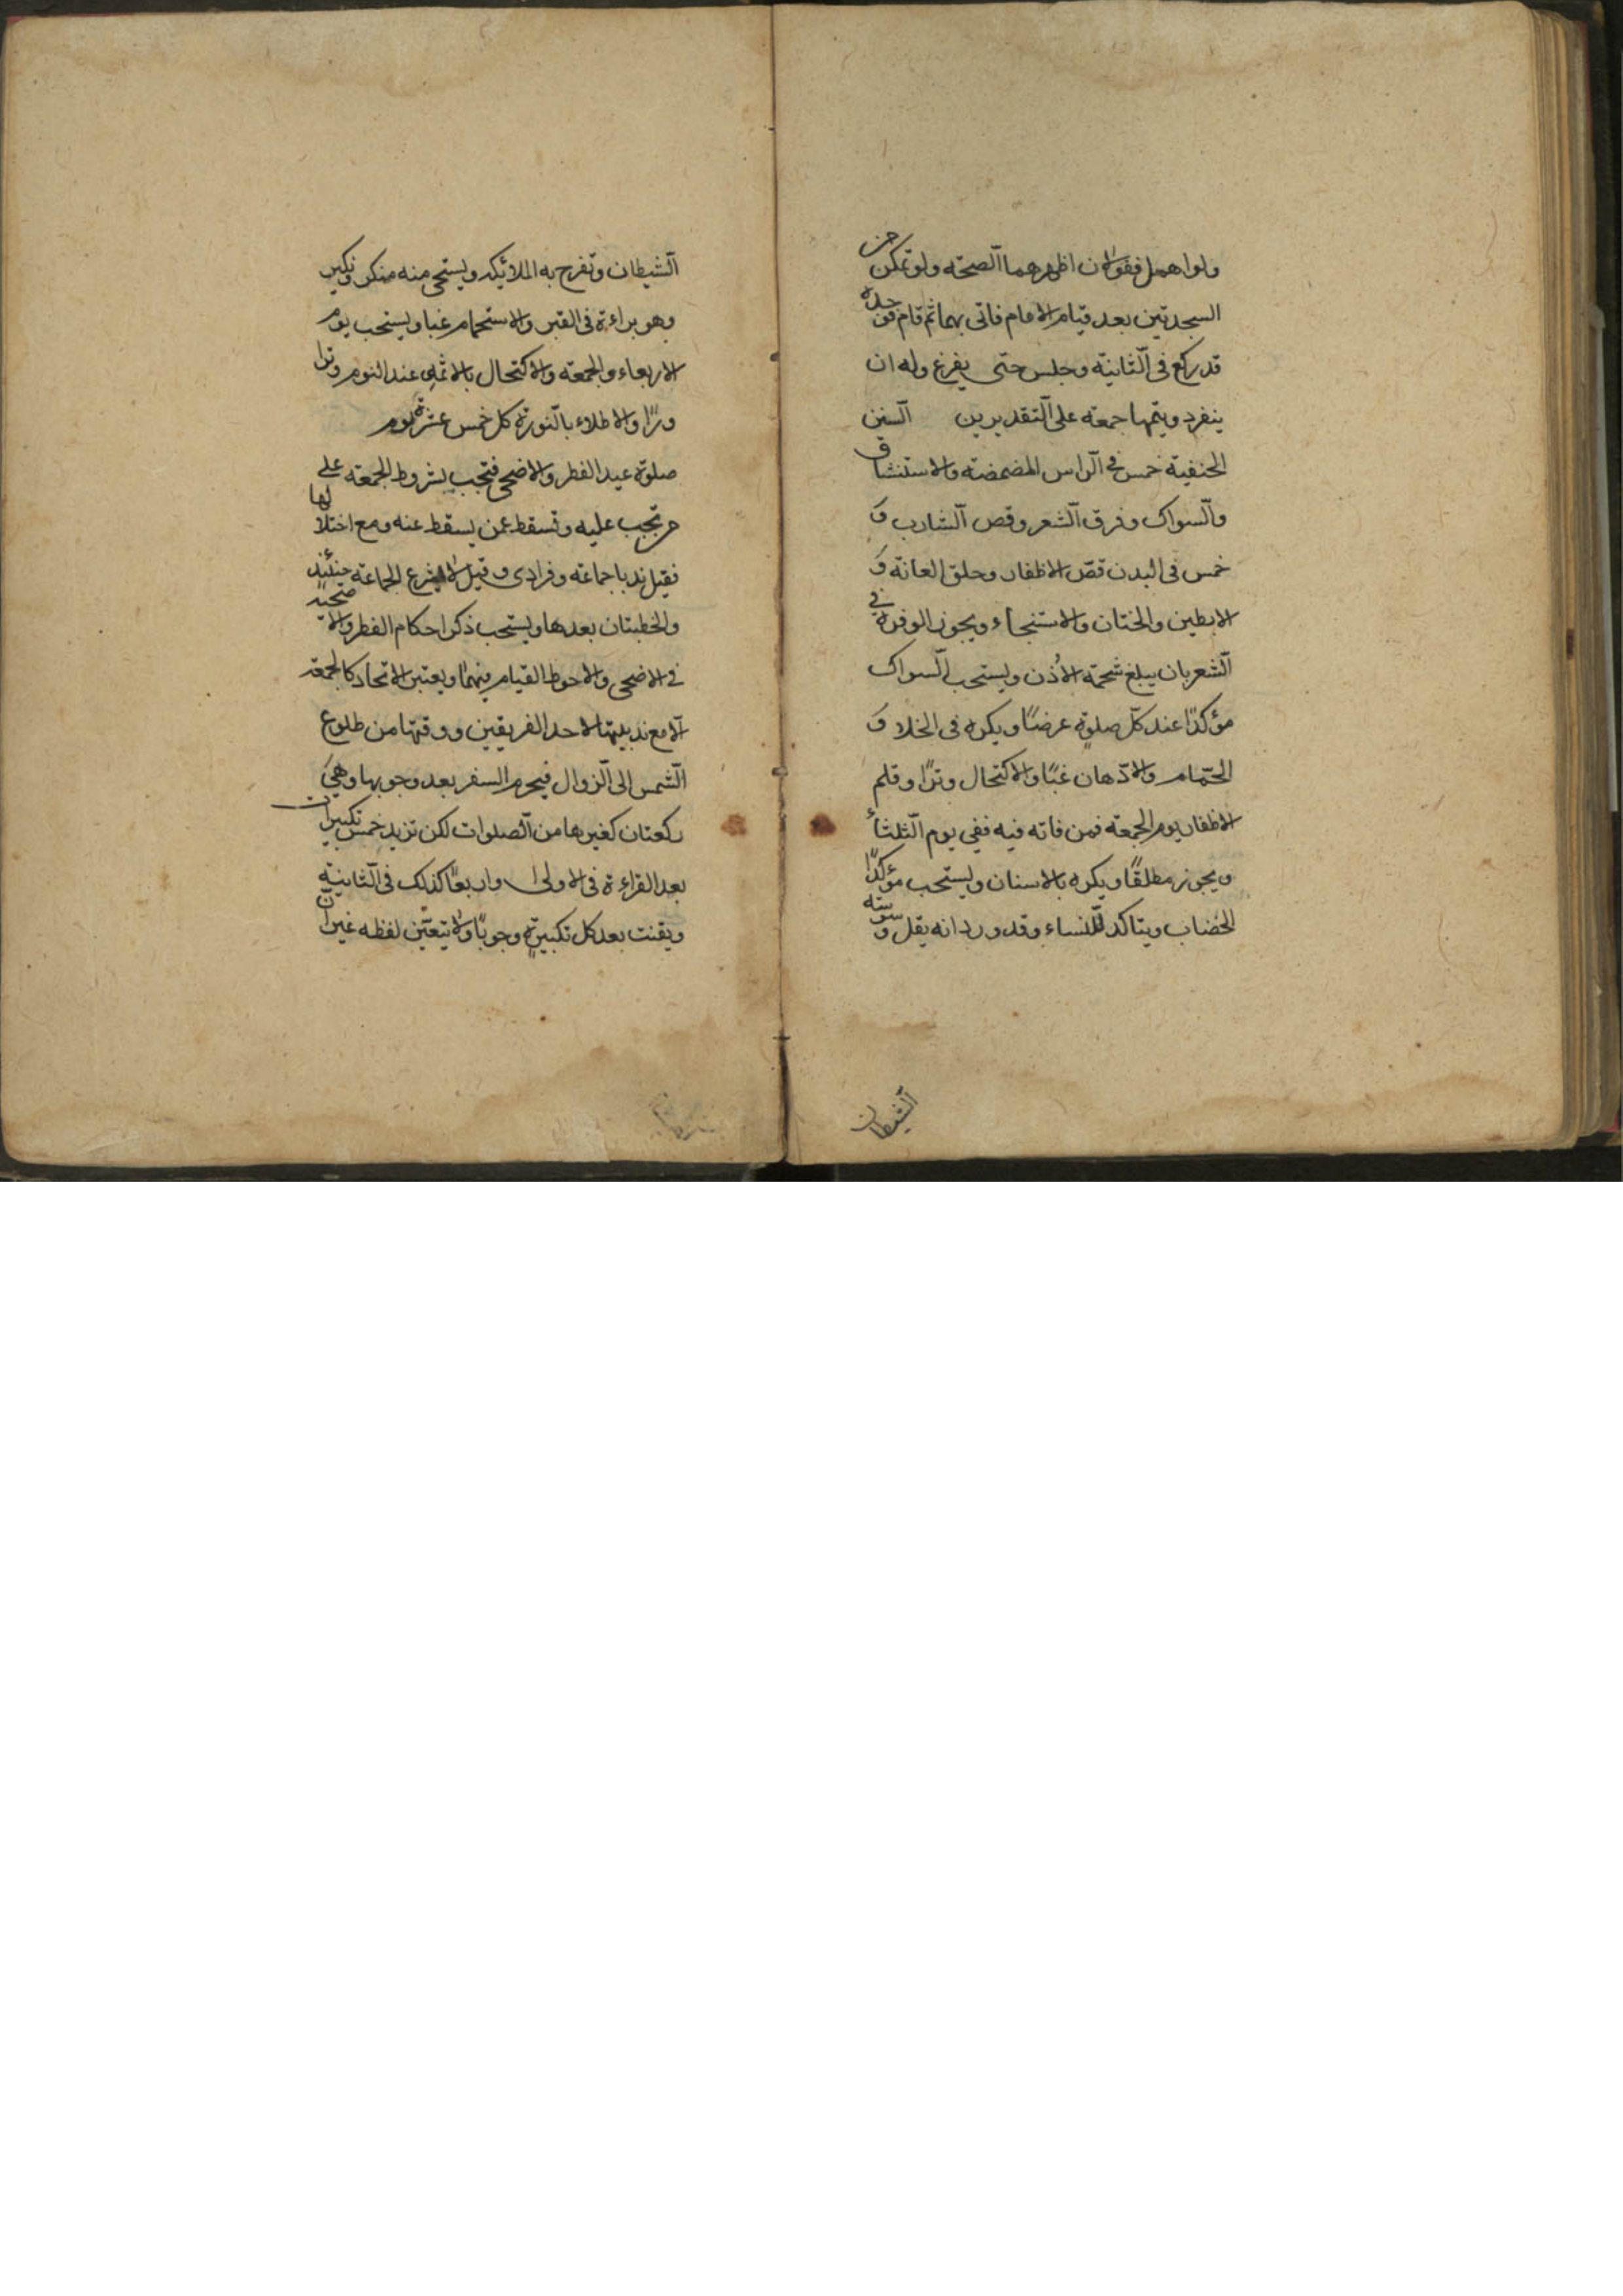 ولو اهمل فقولان اظهرهما الصحّة ولو تمكن من
السجدتين بعد قيام الامام فاتى بهما ثم قام فوجده
قد ركع فى الثّانيّة وجلس حتى يفرغ وله ان
ينفرد ويتمها جمعة على التّقديرين السّنن
الحنفية خمس فى الرّاس المضمضة والاستنشاق
والسّواك وفرق الشّعر وقص الشّارب و
خمس فى البدن قصّ الاظفار وحلق العانة و
الابطين والختان والاستنجاء ويجوز الوفرة فى
الشّعر بان يبلغ شحمة الاُذن ويستحب السّواك
مؤكدًا عند كلّ صلوةٍ عرضًا ويكره فى الخلاء و
الحمّام والادّهان غبًا والاكتحال وترًا وقلم
الاظفار يوم الجمعة فمن فاته فيه ففى يوم الثّلثاء
ويجوز مطلقًا ويكره بالاسنان ويستحب مؤكدًا
الخضاب ويتاكد للنّساء وقد ورد انه يقل وسوسة
الشيطان
الشّيطان وتفرح به الملائيكه ويستحى منه منكر ونكير
وهو براءة فى القبر والاستحمام غبا ويستحب يوم
الاربعاء والجمعة والاكتحال بالاثمد عند النوم وترا
وترًا والاطلاء بالنّورة كل خمس عشرة يوم
صلوة عيد الفطر والاضحى فتجب بشروط الجمعة على
من تجب عليه وتسقط عمن يسقط عنه ومع اختلالها
فقيل ندبا جماعة وفرادى وقيل لا يشرع الجماعة حينئذٍ
والخطبتان بعدها ويستحب ذكر احكام الفطر والاضحية
فى الاضحى والاحوط القيام فيهما ويعتبر الاتحاد كالجمعة
الّا مع ندبيتها لاحد الفريقين ووقتها من طلوع
الشّمس الى الزّوال فيحرم السفر بعد وجوبها وهى
ركعتان كغيرها من الصّلوات لكن تزيد خمس تكبيرات
بعد القراءة فى الاولى واربعًا كذلك فى الثّانية
ويقنت بعد كل تكبيرةٍ وجوبًا ولا يتعيّن لفظه غير انّ